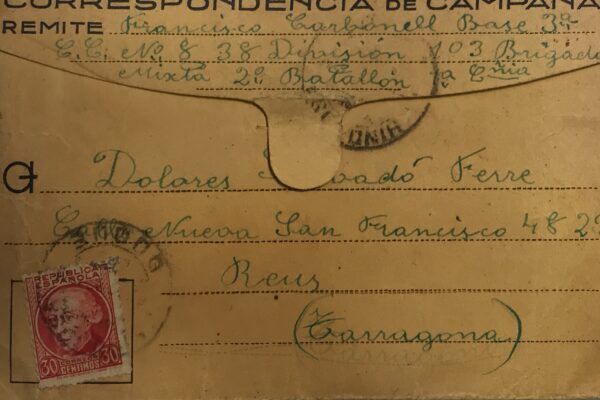 CORRESPONDENCIA DE CAMPAÑA
REMITE Francisco Carbonell Base 3ª
C.C. Nº 8 38 División 103 Brigada
Mixta 2º Batallón 1ª Cñia
Dolares Ferre
Calle Nueva San Francisco 48 2º
Reus
(Tarragona)
REPUBLICA
ESPAÑOLA
CORREOS
30 CENTIMOS 30